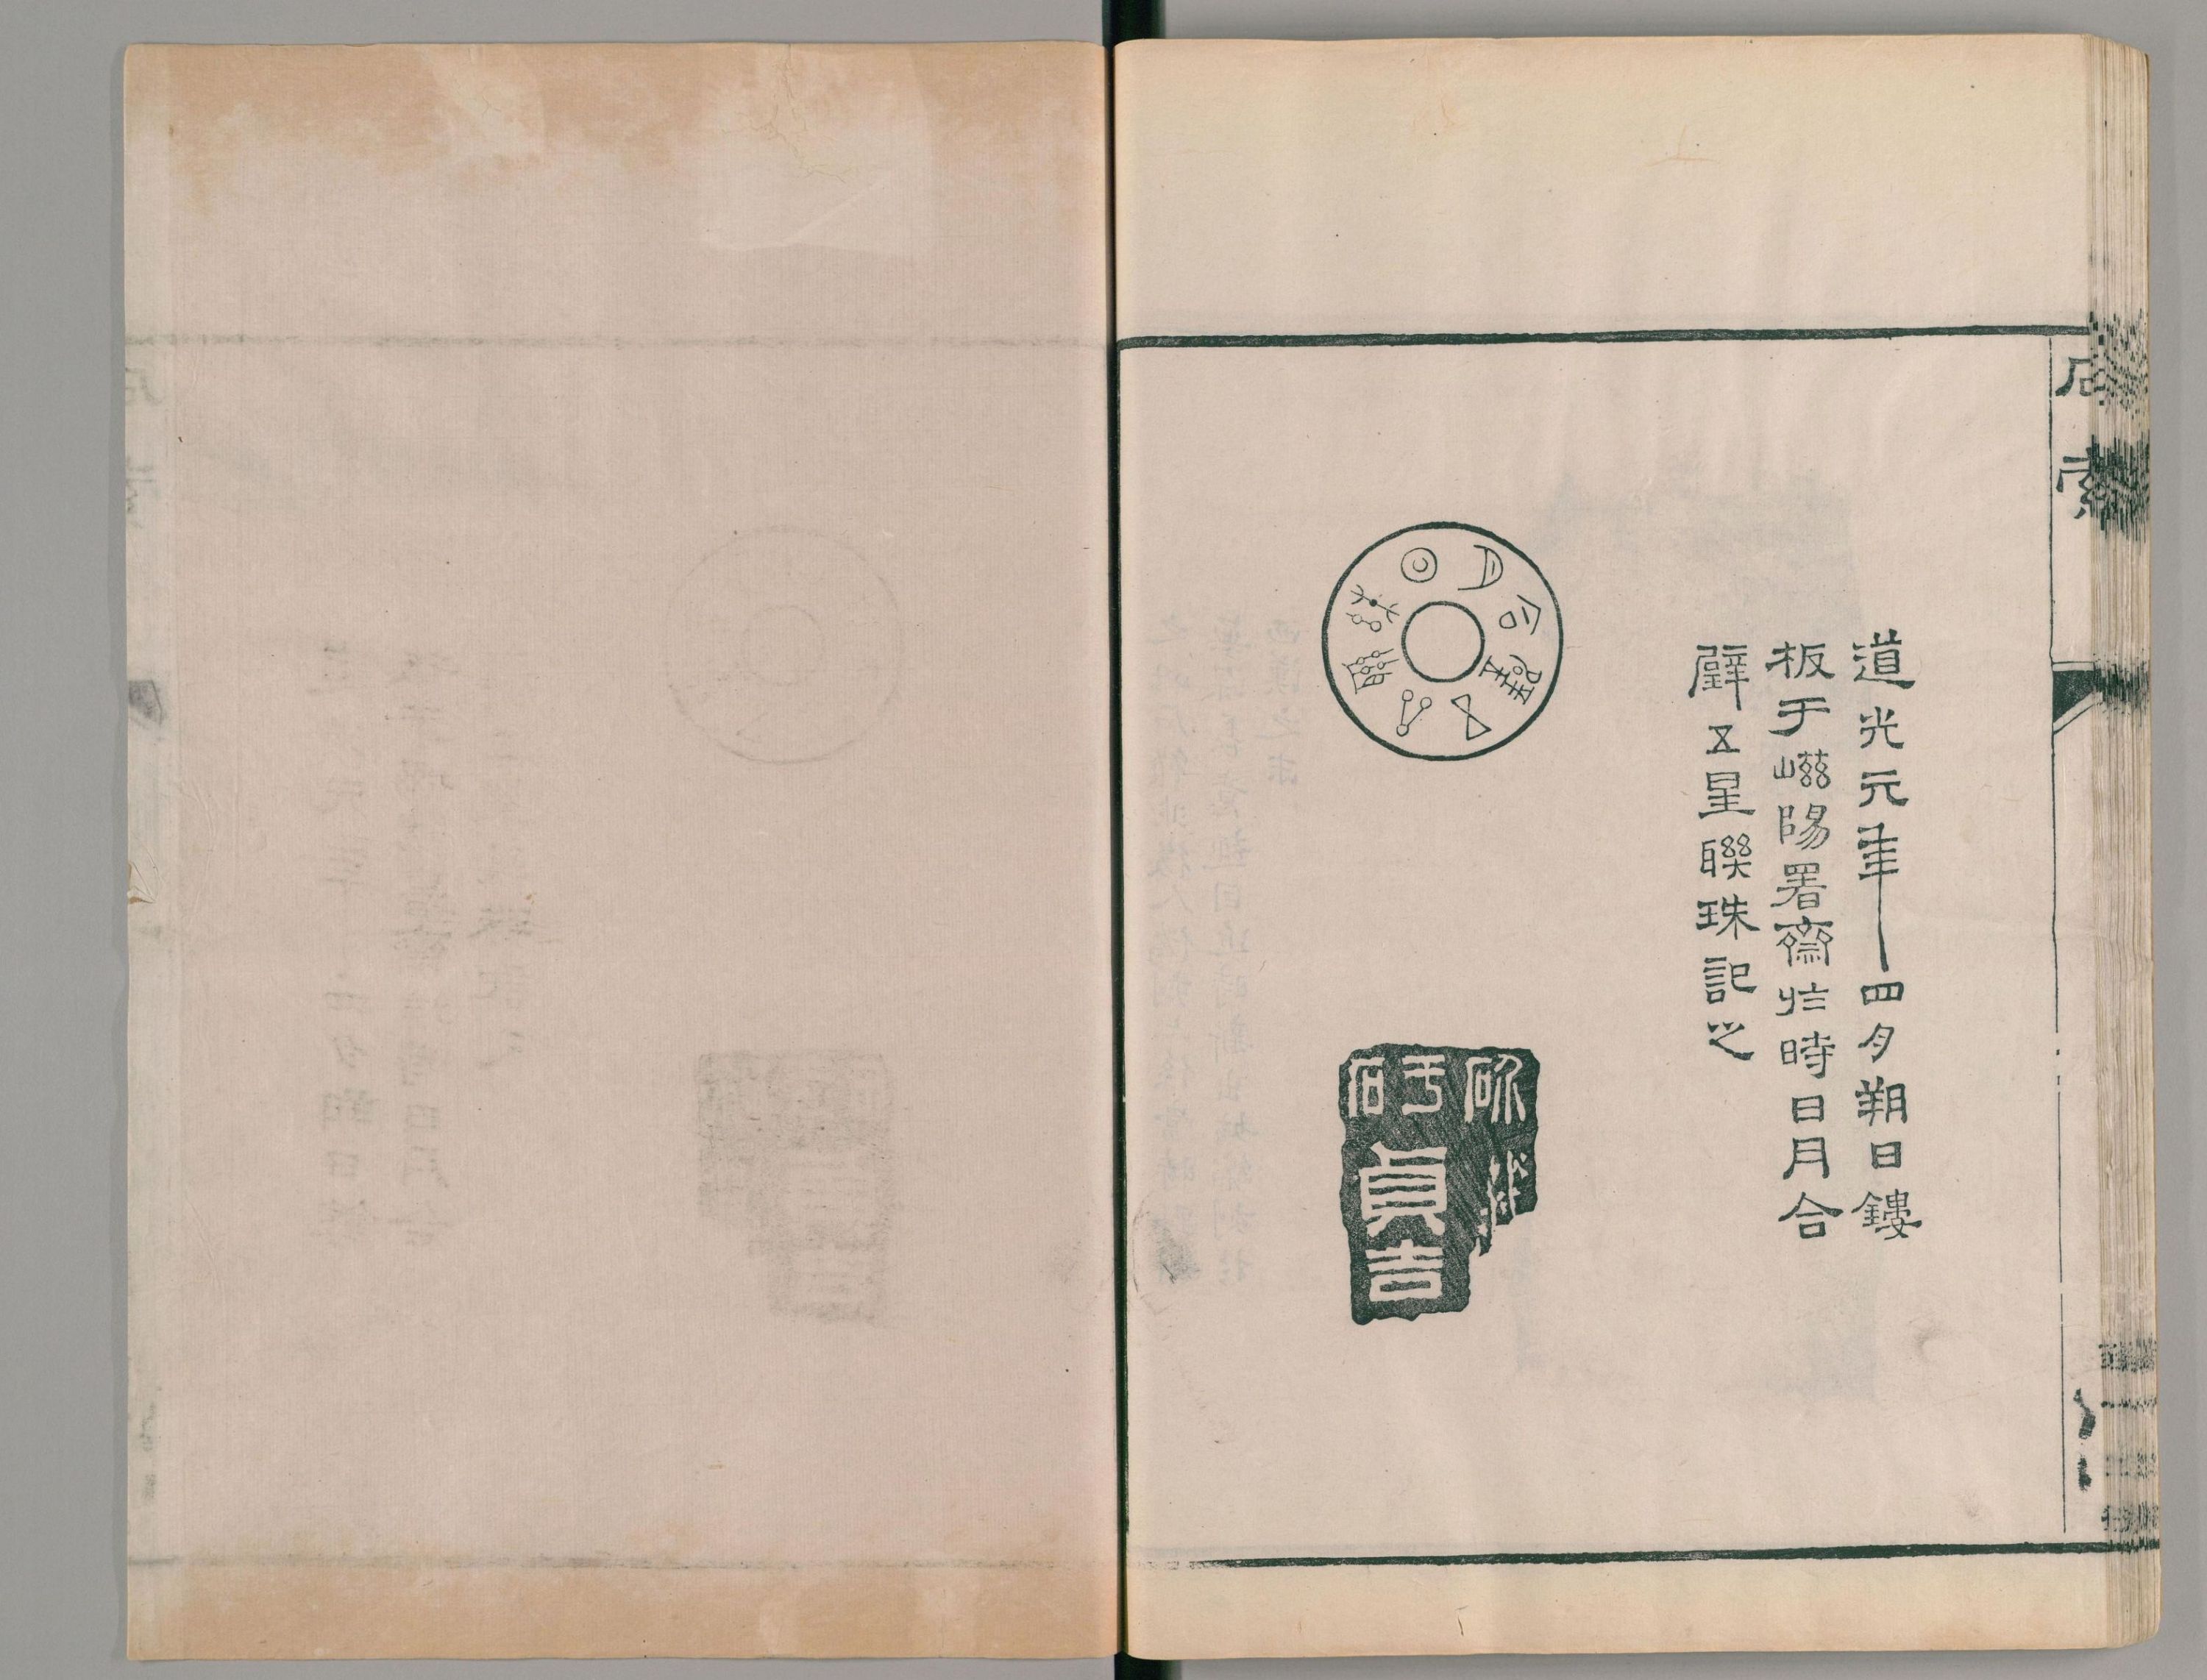 道光元年四月朔日鏤
板于嵫陽署齋於時日月合
璧五星聯珠記之
日月合璧五星聯珠
介于石貞吉
石索